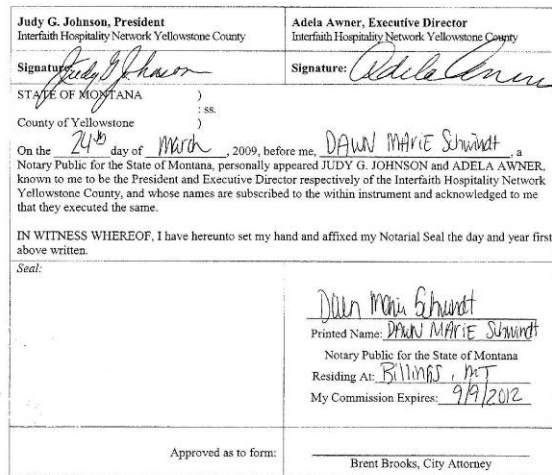 Judy G. Johnson, President
Interfaith Hospitality Network Yellowstone County
Adela Awner, Executive Director
Interfaith Hospitality Network Yellowstone County
Signature: Judy G Johnson
Signature: Adela Awner
STATE OF MONTANA )
: ss.
County of Yellowstone )
On the 24th day of March, 2009, before me, DAWN MARiE Schwindt, a
Notary Public for the State of Montana, personally appeared JUDY G. JOHNSON and ADELA AWNER,
known to me to be the President and Executive Director respectively of the Interfaith Hospitality Network
Yellowstone County, and whose names are subscribed to the within instrument and acknowledged to me
that they executed the same.
IN WITNESS WHEREOF, I have hereunto set my hand and affixed my Notarial Seal the day and year first
above written.
Seal:
Dawn Marie Schwindt
Printed Name: DAWN MARiE Schwindt
Notary Public for the State of Montana
Residing At: Billings, MT
My Commission Expires: 9/9/2012
Approved as to form:
Brent Brooks, City Attorney